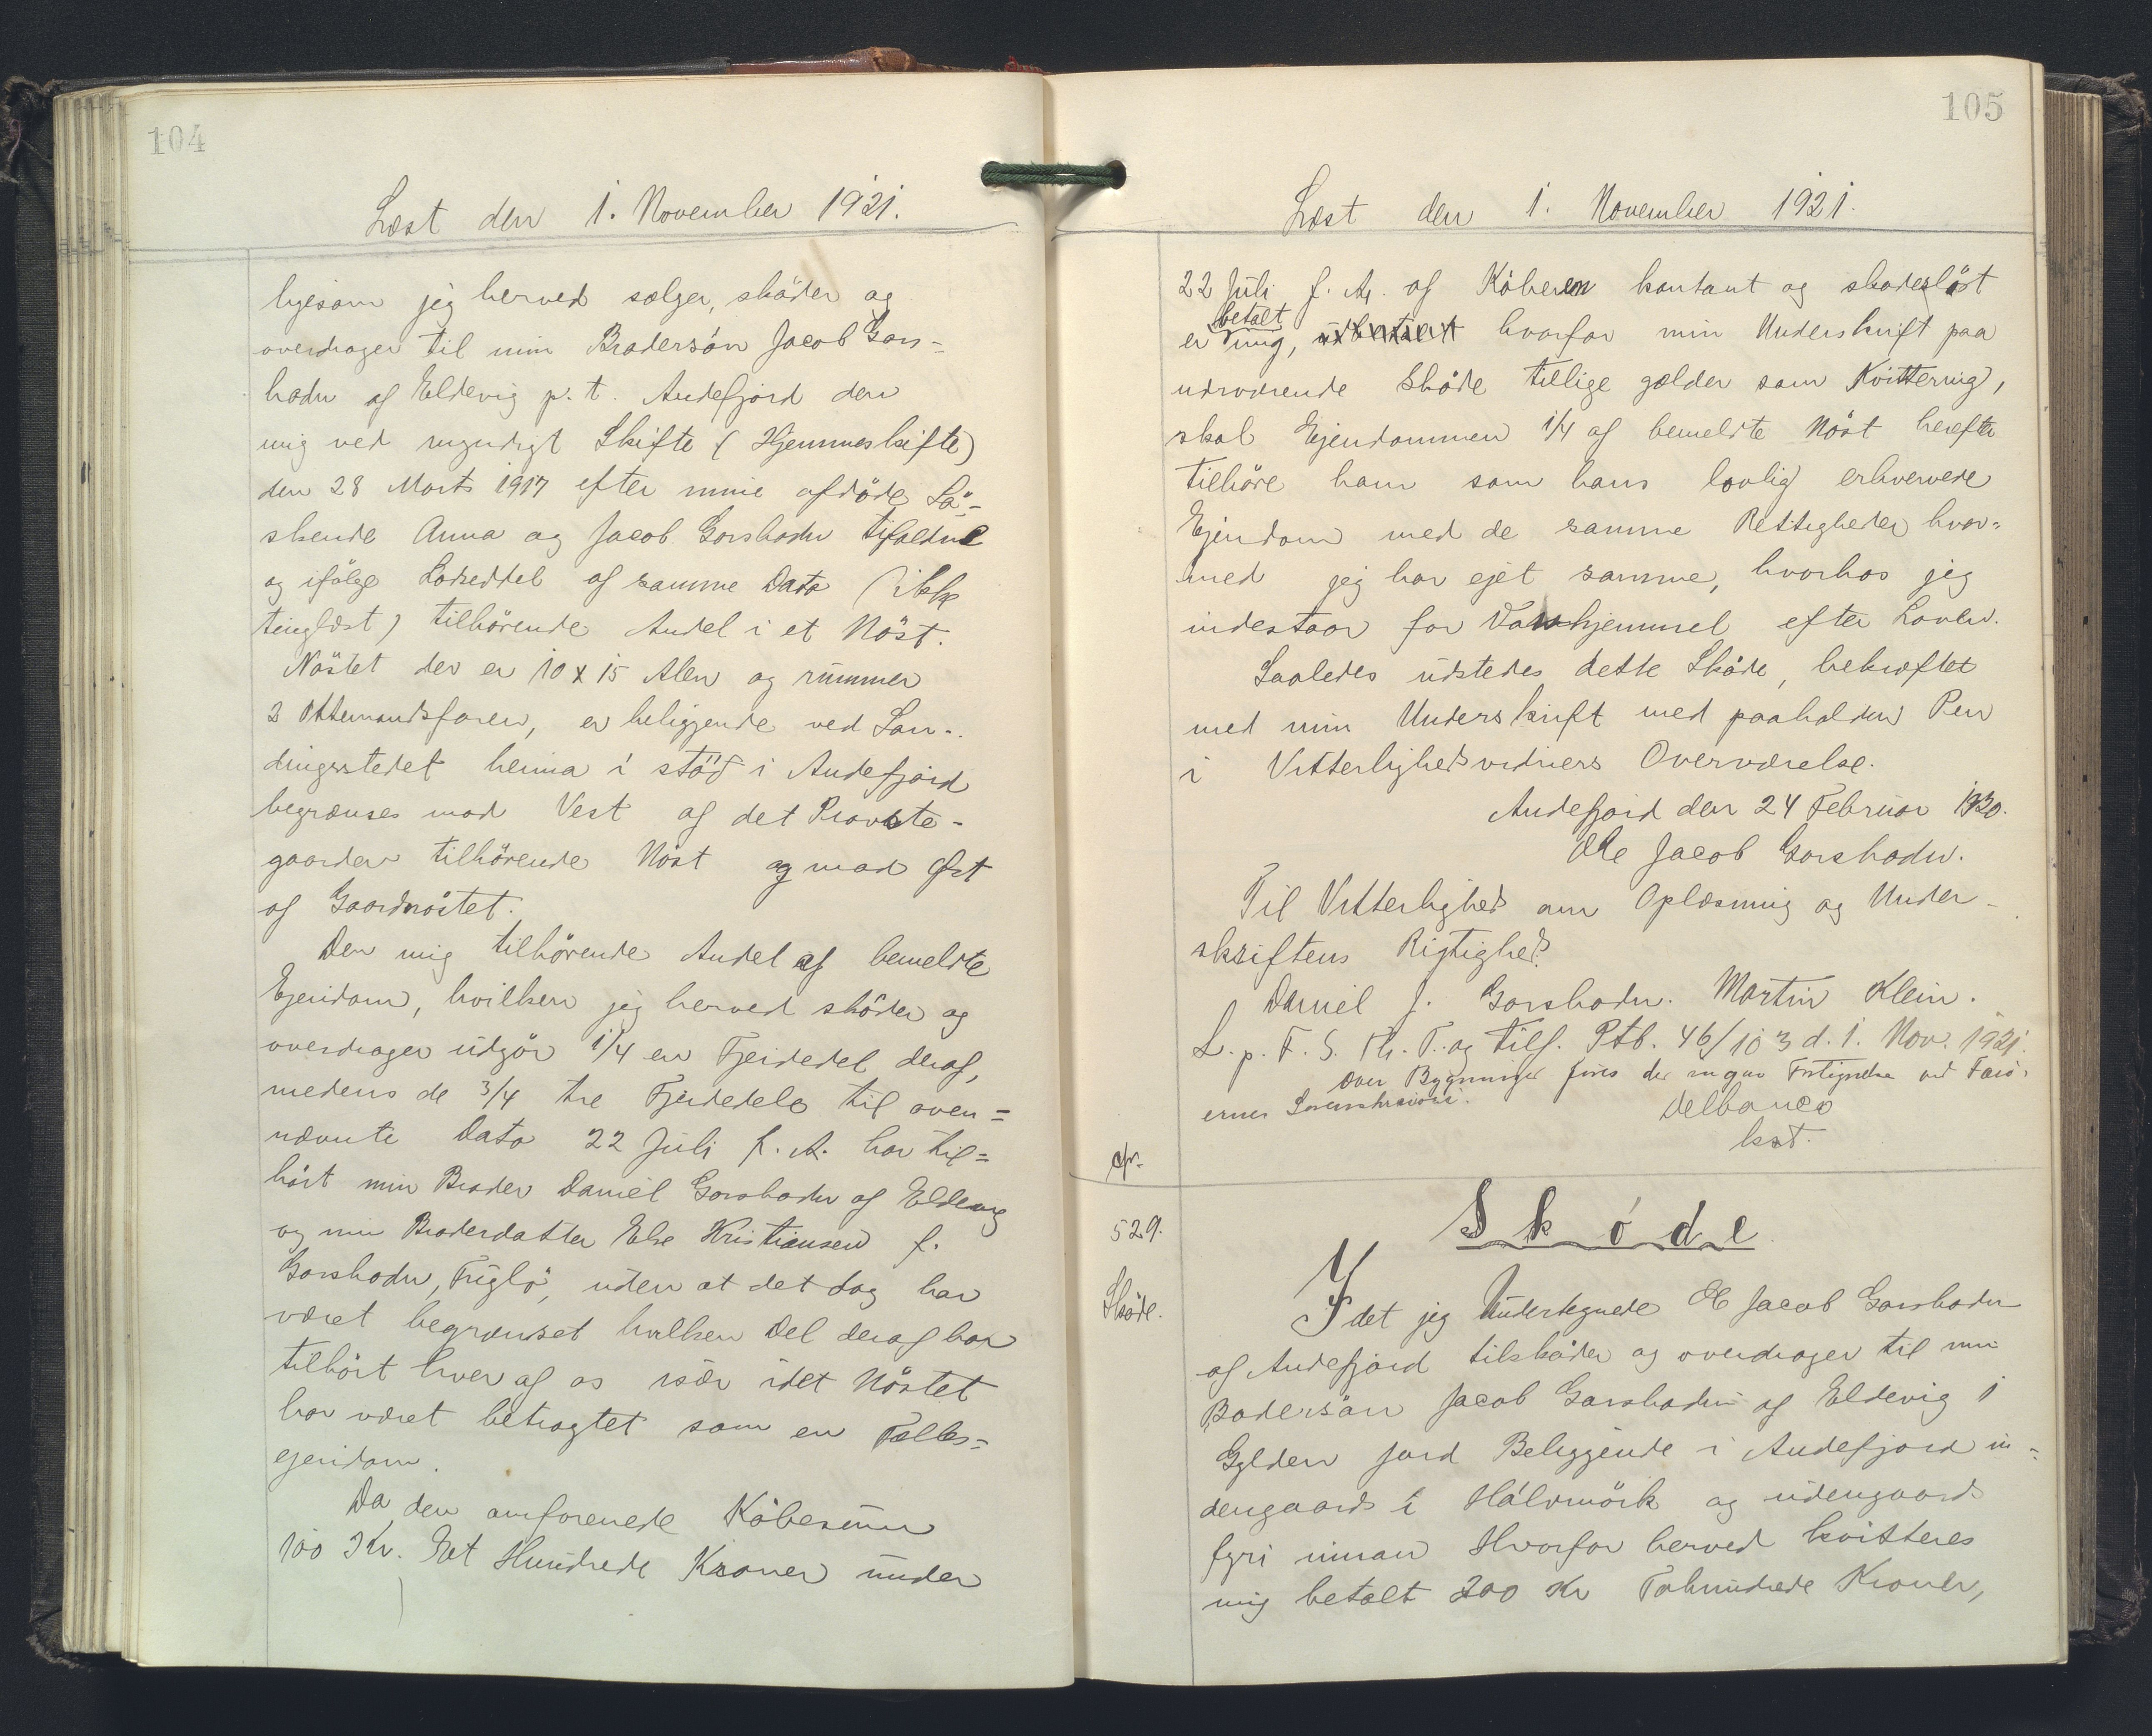 104
Læst den 1. November 1921.
ligesom jeg herved sælger, sköder og
overdrager til min Brodersön Jacob Gars-
hodn af Eldevig p. t. Andefjord den
mig ved myndigt Skifte (Hjemmeskifte)
den 28 Marts 1917 efter mine afdöde Sö-
skende Anna og Jacob Garshodn tilfaldne
og ifölge Lodseddel af samme Dato (ikke
tinglæst) tilhörende Andel i et Nöst.
Nöstet der er 10 x 15 Alen og rummer
2 Ottemandsfarer, er beliggende ved Lan-
dingsstedet heima i stöð i Andefjord
begrænses mod Vest af det Provste-
gaarden tilhörende Nöst og mod Øst
af Gaardnöstet.
Den mig tilhörende Andel af bemeldte
Ejendom, hvilken jeg herved sköder og
overdrager udgör 1/4 en Fjerdedel deraf,
medens de 3/4 tre Fjerdedele til oven=
nævnte Dato 22 Juli f. A. har til=
hört min Broder Daniel Garshodn af Eldevig
og min Broderdatter Else Kristiansen f.
Garshodn, Fuglö, uden at det dog har
været begrænset hvilken Del deraf har
tilhört hver af os især idet Nöstet
har været betragtet som en Fælles=
ejendom.
Da den omforenede Köbesum
100 Kr. Et Hundrede Kroner under
105
Læst den 1. November 1921.
22 Juli f. A. af Köberen kontant og skadeslöst
er betalt mig, hvorfor min Underskrift paa
nærværende Sköde tillige gælder som Kvittering,
skal Ejendommen 1/4 af bemeldte Nöst herefter
tilhöre ham som hans lovlig erhvervede
Ejendom med de samme Rettigheder hvor=
med jeg har ejet samme, hvorhos jeg
indestaar for Vanhjemmel efter Loven.
Saaledes udstedes dette Sköde, bekræftet
med min Underskrift med paaholden Pen
i Vitterlighedsvidners Overværelse.
Andefjord den 24 Februar 1920.
Ole Jacob Garshodn.
Til Vitterlighed om Oplæsning og Under-
skriftens Rigtighed.
Daniel J. Garshodn. Martin Klein.
L. p. F. S. Th. T. og tilf. Ptb. 46/103 d. 1. Nov. 1921.
Over Bygninger føres der ingen Fortegnelse ved Færö-
ernes Sorenskriveri.
Delbanco
kst.
cfr.
529.
Sköde.
Sköde
Idet jeg Undertegnede Ole Jacob Garshodn
af Andefjord tilsköder og overdrager til min
Brodersön Jacob Garshodn af Eldevig 1
Gylden Jord Beliggende i Andefjord in=
dengaards i Hálvmörk og udengaards
fyri innan Hvorfor herved kvitteres
mig betalt 200 Kr Tohundrede Kroner,